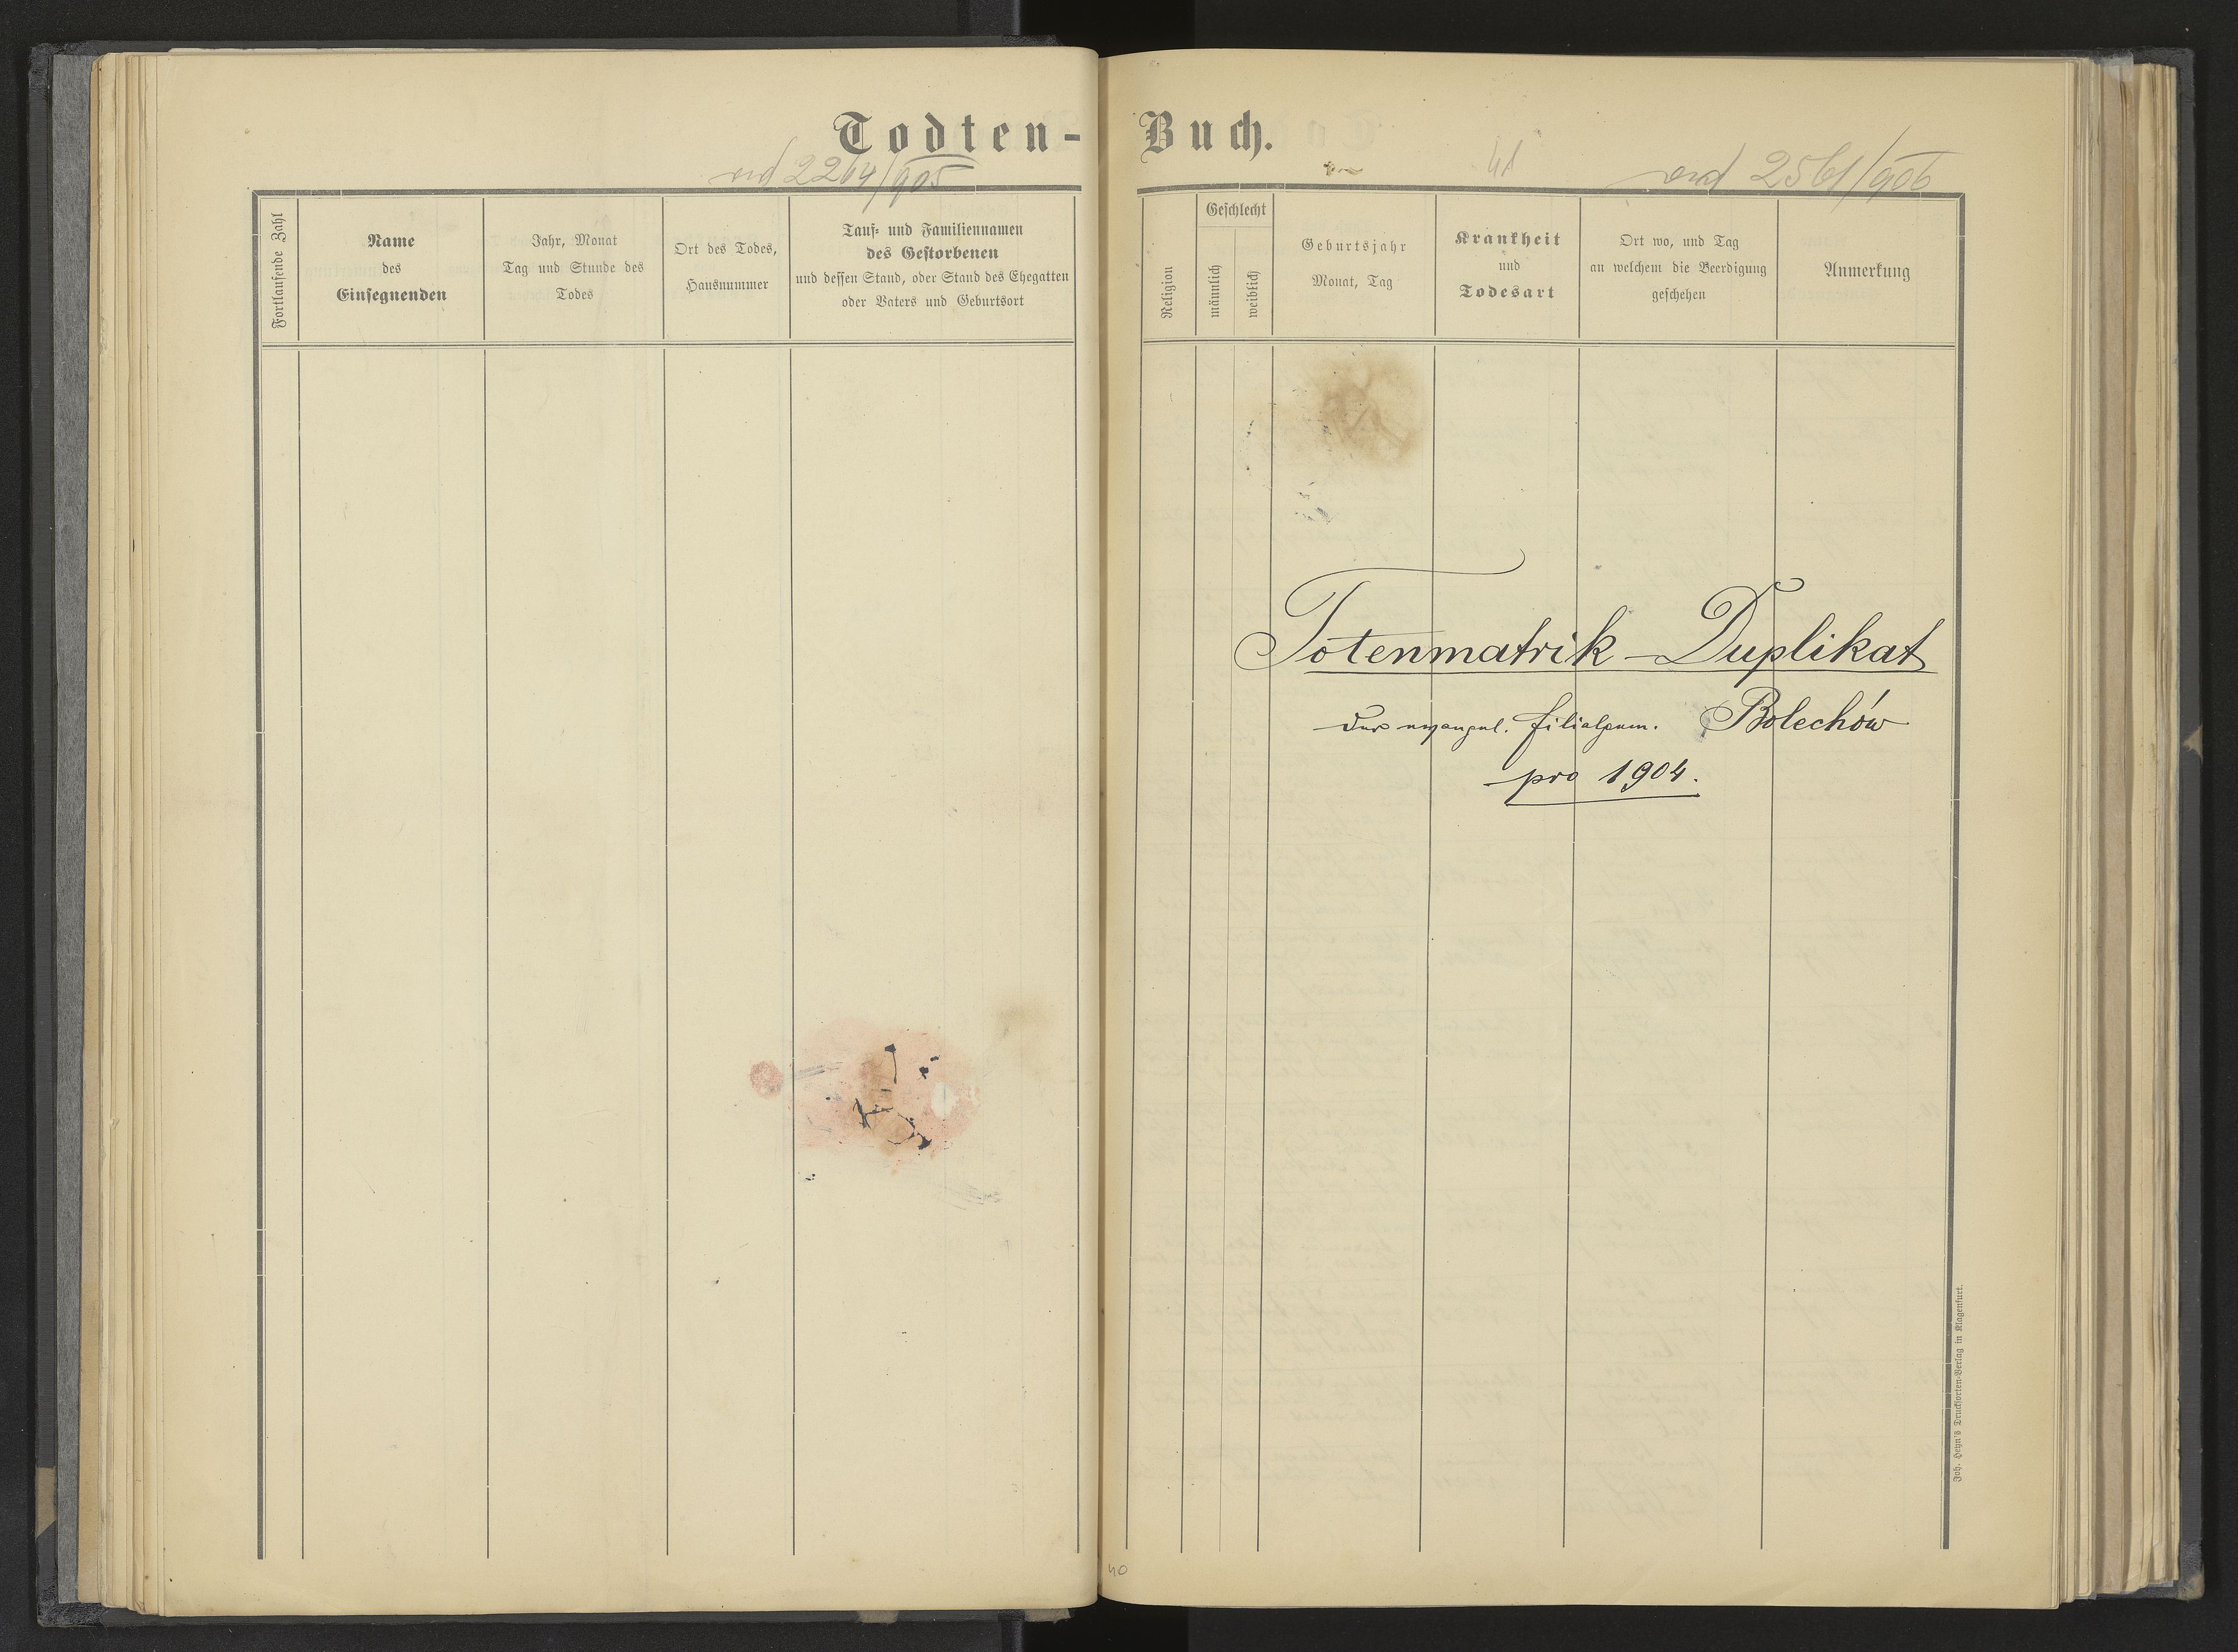 Todten-
ad 2264/905
Fortlaufende Zahl
Name
des
Einsegnenden
Jahr, Monat
Tag und Stunde des
Todes
Ort des Todes,
Hausnummer
Tauf- und Familiennamen
des Gestorbenen
und dessen Stand, oder Stand des Ehegatten
oder Vaters und Geburtsort
Buch.
41
ad 2561/906
Religion
Geschlecht
männlich
weiblich
Geburtsjahr
Monat, Tag
Krankheit
und
Todesart
Ort wo, und Tag
an welchem die Beerdigung
geschehen
Anmerkung
Totenmatrik-Duplikat
der evangel. Filialgem. Bolechów
pro 1904.
Joh. Heyn's Drucksorten-Verlag in Klagenfurt.
40